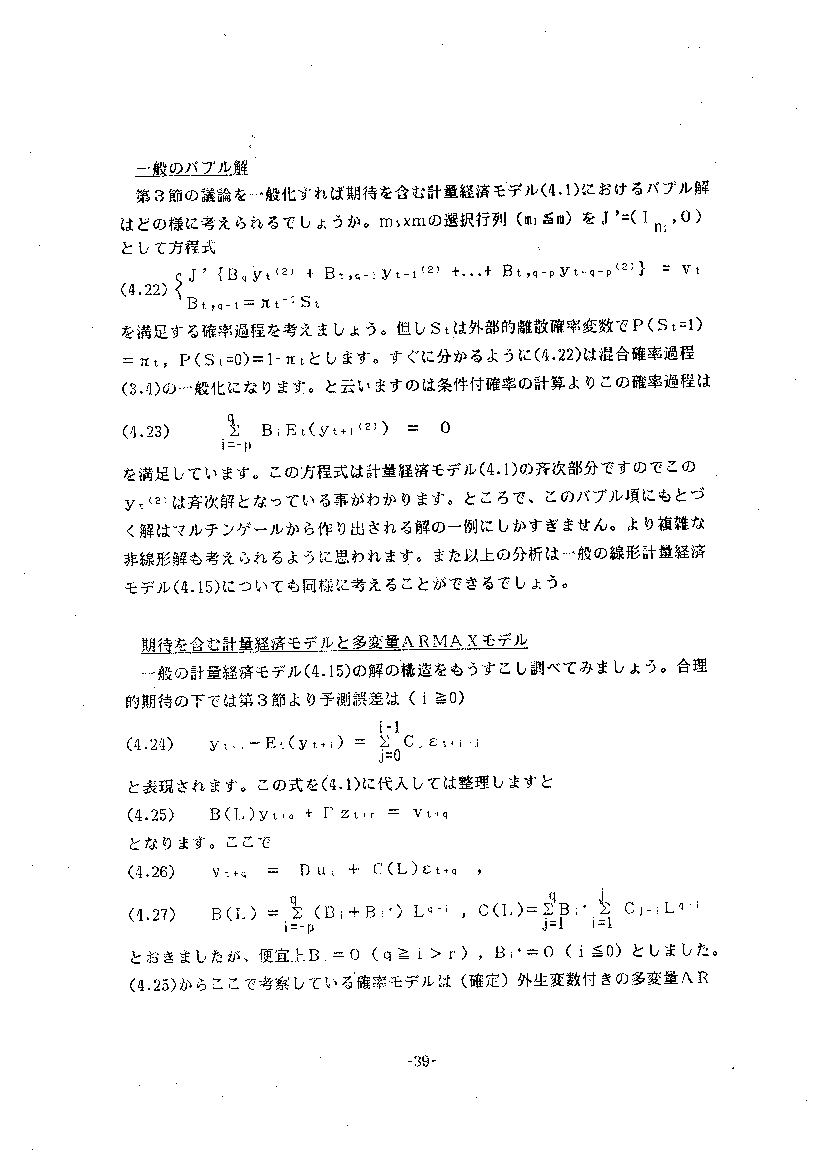 一般のバブル解
第3節の議論を一般化すれば期待を含む計量経済モデル(4.1)におけるバブル解
はどの様に考えられるでしょうか。m₁xmの選択行列（m₁≦m）をJ'=(I_{n₁},O)
として方程式
(4.22) { J'{B_q y_t^{(2)} + B_{t,q-1} y_{t-1}^{(2)} +...+ B_{t,q-p} y_{t-q-p}^{(2)}} = v_t
B_{t,q-1} = π_t^{-1} S_t
を満足する確率過程を考えましょう。但しS_tは外部的離散確率変数でP(S_t=1)
=π_t, P(S_t=0)=1-π_tとします。すぐに分かるように(4.22)は混合確率過程
(3.4)の一般化になります。と云いますのは条件付確率の計算よりこの確率過程は
(4.23) Σ_{i=-p}^{q} B_i E_t(y_{t+i}^{(2)}) = 0
を満足しています。この方程式は計量経済モデル(4.1)の斉次部分ですのでこの
y_t^{(2)}は斉次解となっている事がわかります。ところで、このバブル項にもとづ
く解はマルチンゲールから作り出される解の一例にしかすぎません。より複雑な
非線形解も考えられるように思われます。また以上の分析は一般の線形計量経済
モデル(4.15)についても同様に考えることができるでしょう。
期待を含む計量経済モデルと多変量ARMAXモデル
一般の計量経済モデル(4.15)の解の構造をもうすこし調べてみましょう。合理
的期待の下では第3節より予測誤差は（i≧0）
(4.24) y_{t+i} - E_t(y_{t+i}) = Σ_{j=0}^{i-1} C_j ε_{t+i-j}
と表現されます。この式を(4.1)に代入しては整理しますと
(4.25) B(L)y_{t+q} + Γz_{t+r} = v_{t+q}
となります。ここで
(4.26) v_{t+q} = Du_t + C(L)ε_{t+q} ,
(4.27) B(L) = Σ_{i=-p}^{q} (B_i+B_i*) L^{q-i} , C(L)=Σ_{j=1}^{q} B_j* Σ_{i=1}^{j} C_{j-i} L^{q-i}
とおきましたが、便宜上B_i=O（q≧i>r）, B_i*=O（i≦0）としました。
(4.25)からここで考察している確率モデルは（確定）外生変数付きの多変量AR
-39-